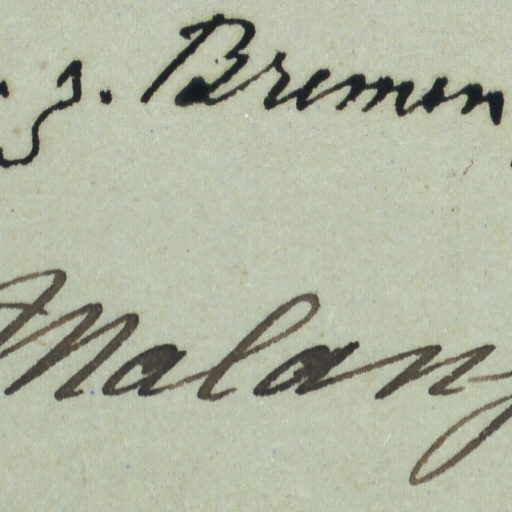 z. Bremen
Malang